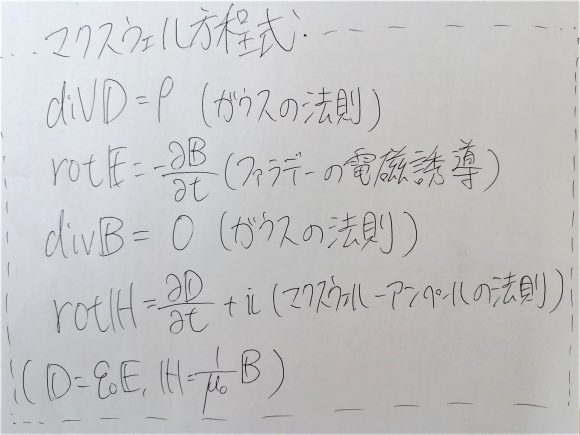 マクスウェル方程式
div𝔻=ρ (ガウスの法則)
rot𝔼=-∂𝔹/∂t (ファラデーの電磁誘導)
div𝔹= 0 (ガウスの法則)
rotℍ=∂𝔻/∂t + 𝕚 (マクスウェルーアンペールの法則)
(𝔻=ε₀𝔼, ℍ=1/μ₀ 𝔹)